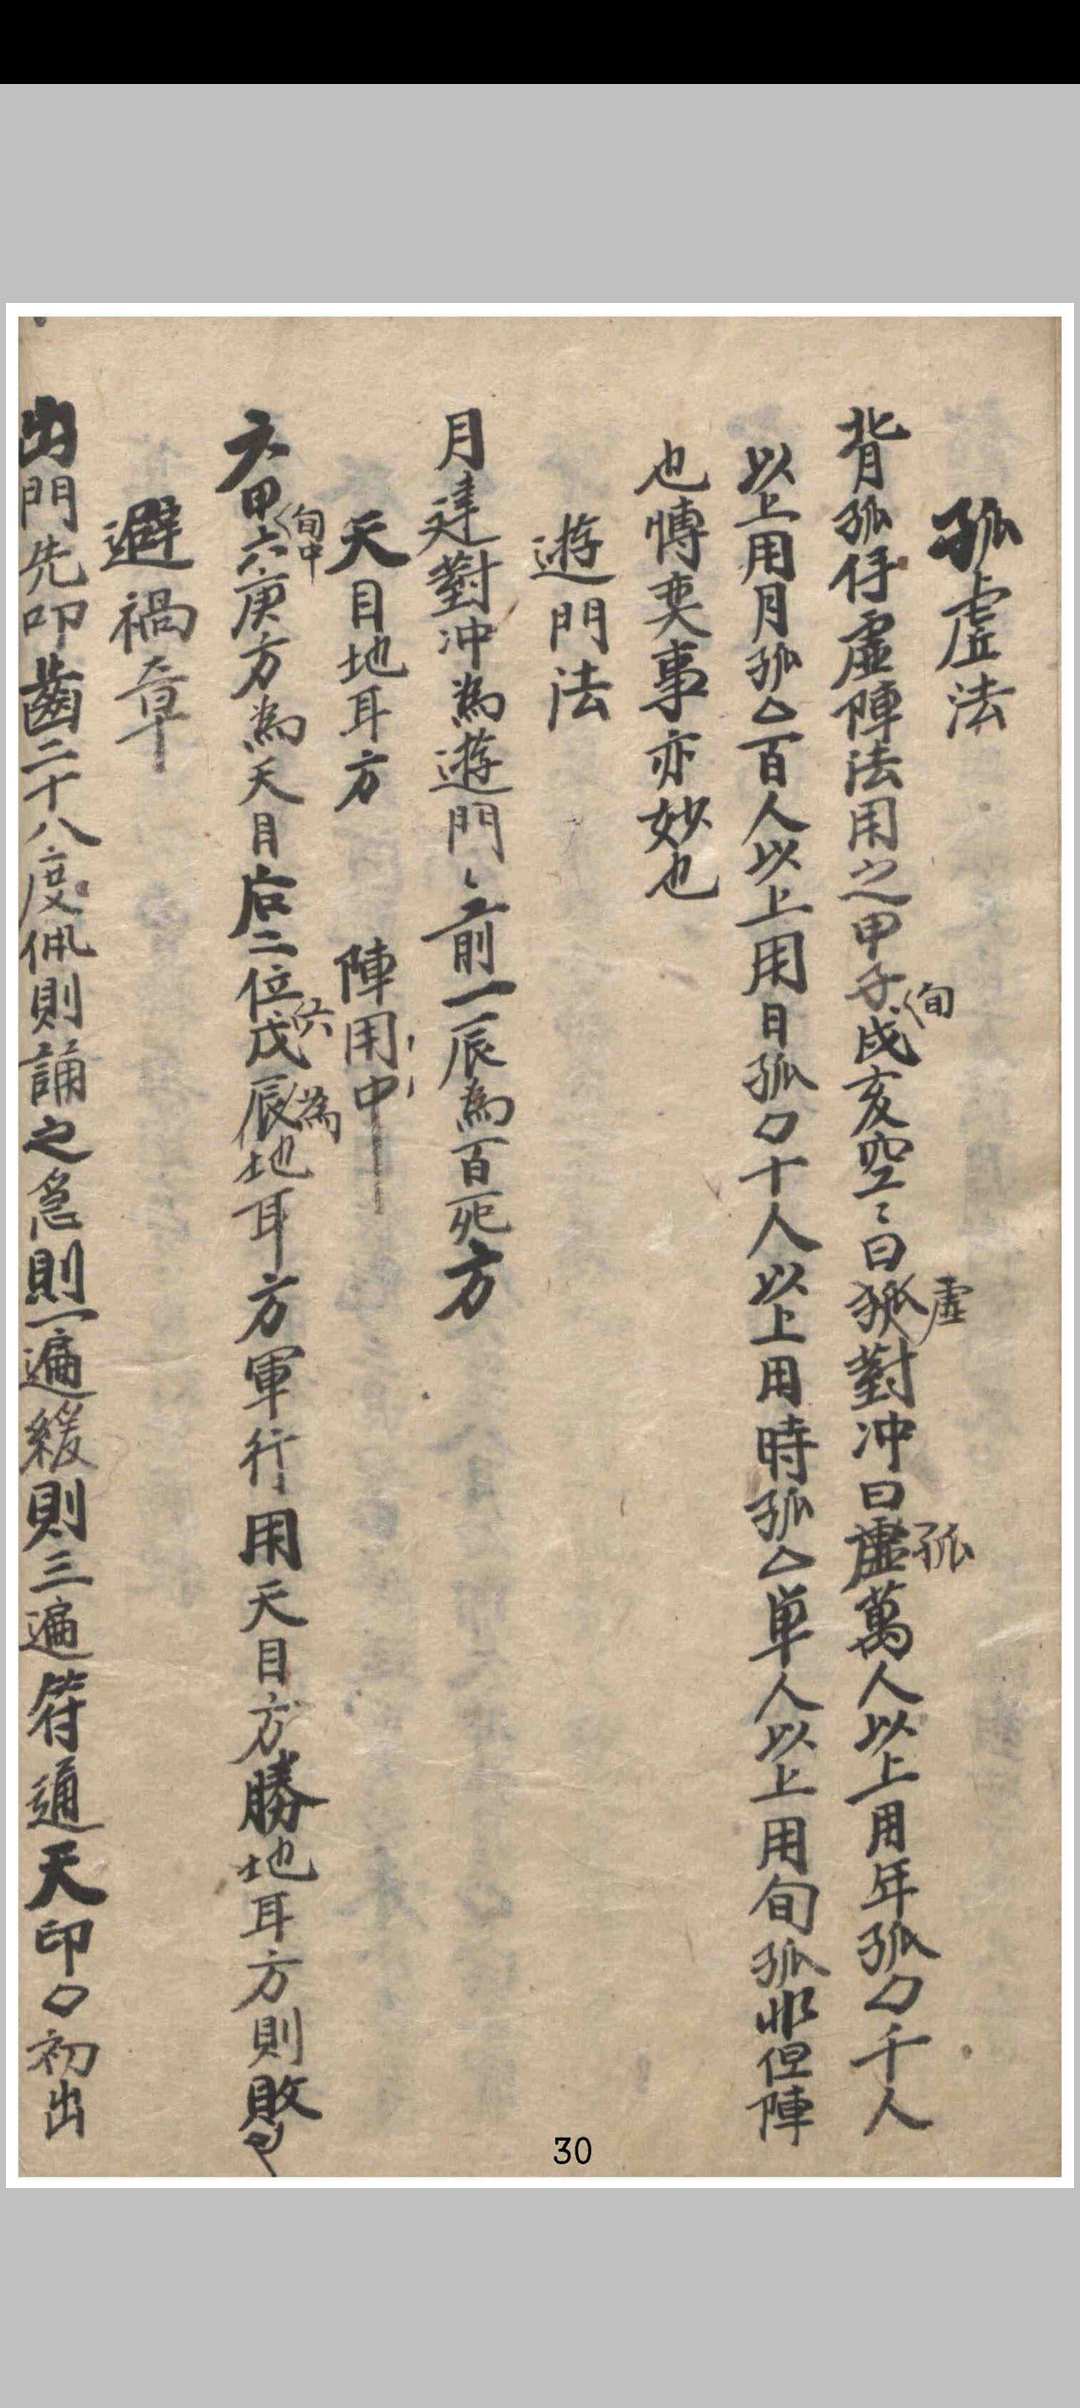 孤虛法
背孤伃虛陣法用之甲子旬戌亥空〻曰狐虛對冲曰虛孤萬人以上用年孤口千人
以上用月孤厶百人以上用日孤口十人以上用時孤厶単人以上用旬孤非但陣
也愽奕事亦妙也
遊門法
月建對冲為遊門〻前一辰為百死方
天目地耳方 陣用中
六甲旬中六庚方為天目后二位六戊辰為地耳方軍行用天目方勝地耳方則敗也
避禍章
出門先叩齒二十八度佩則誦之急則一遍緩則三遍符通天印口初出
30